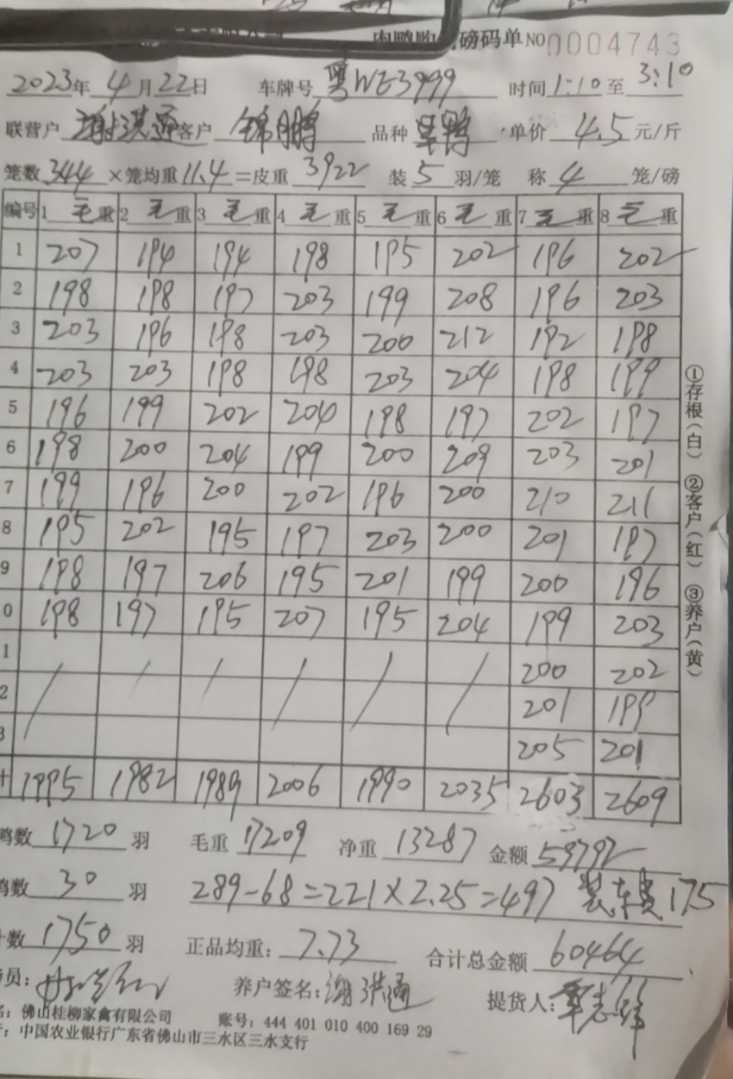 肉鸭 磅码单 NO 0004743
2023年 4月22日 车牌号 粤WE3999 时间 1:10 至 3:10
联营户 谢洪通 客户 锦鹏 品种 ·单价 4.5 元/斤
笼数 344 ×笼均重 11.4 =皮重 3922 装 5 羽/笼 称 4 笼/磅
编号 1 毛 重 2 毛 重 3 毛 重 4 毛 重 5 毛 重 6 毛 重 7 毛 重 8 毛 重
1 207 194 194 198 195 202 196 202
2 198 198 197 203 199 208 196 203
3 203 196 198 203 200 212 192 198
4 203 203 198 198 203 204 198 199
5 196 199 202 204 198 197 202 197
6 198 200 204 199 200 209 203 201
7 199 196 200 202 196 200 210 211
8 195 202 195 197 203 200 201 197
9 198 197 206 195 201 199 200 196
0 198 197 195 207 195 204 199 203
1 / / / / / / 200 202
2 201 199
3 205 201
1995 1982 1989 2006 1990 2035 2603 2609
鸭数 1720 羽 毛重 17209 净重 13287 金额 59792
鸡数 30 羽 289-68=221×2.25=497 装车费175
数 1750 羽 正品均重: 7.73 合计总金额 60464
员: 养户签名: 谢洪通 提货人:
名: 佛山桂柳家禽有限公司 账号: 444 401 010 400 169 29
行: 中国农业银行广东省佛山市三水区三水支行
①存根(白) ②客户(红) ③养户(黄)